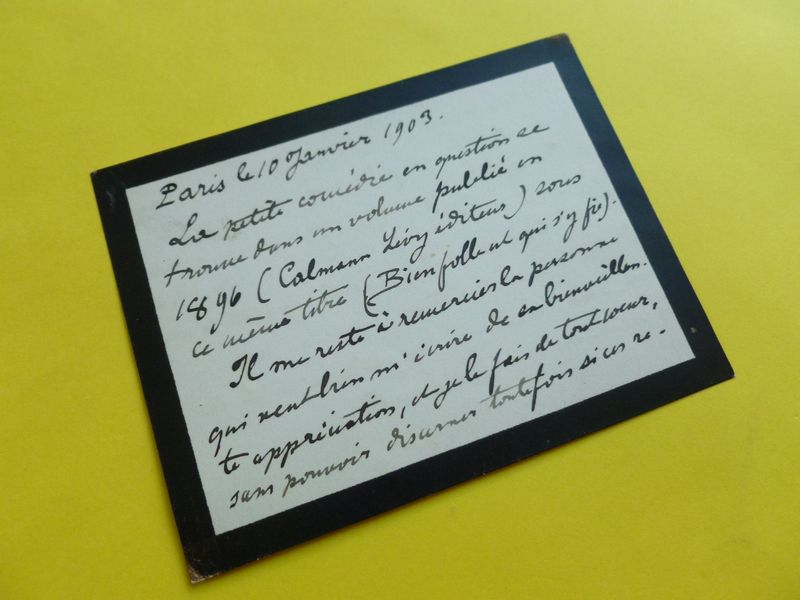 Paris le 10 Janvier 1903.
La petite comédie en question se
trouve dans un volume publié en
1896 (Calmann Lévy éditeurs) sous
ce même titre (Bien folle est qui s'y fie).
Il me reste à remercier la personne
qui veut bien m'écrire de sa bienveillan-
te appréciation, et je le fais de tout coeur,
sans pouvoir discerner toutefois si ces re-